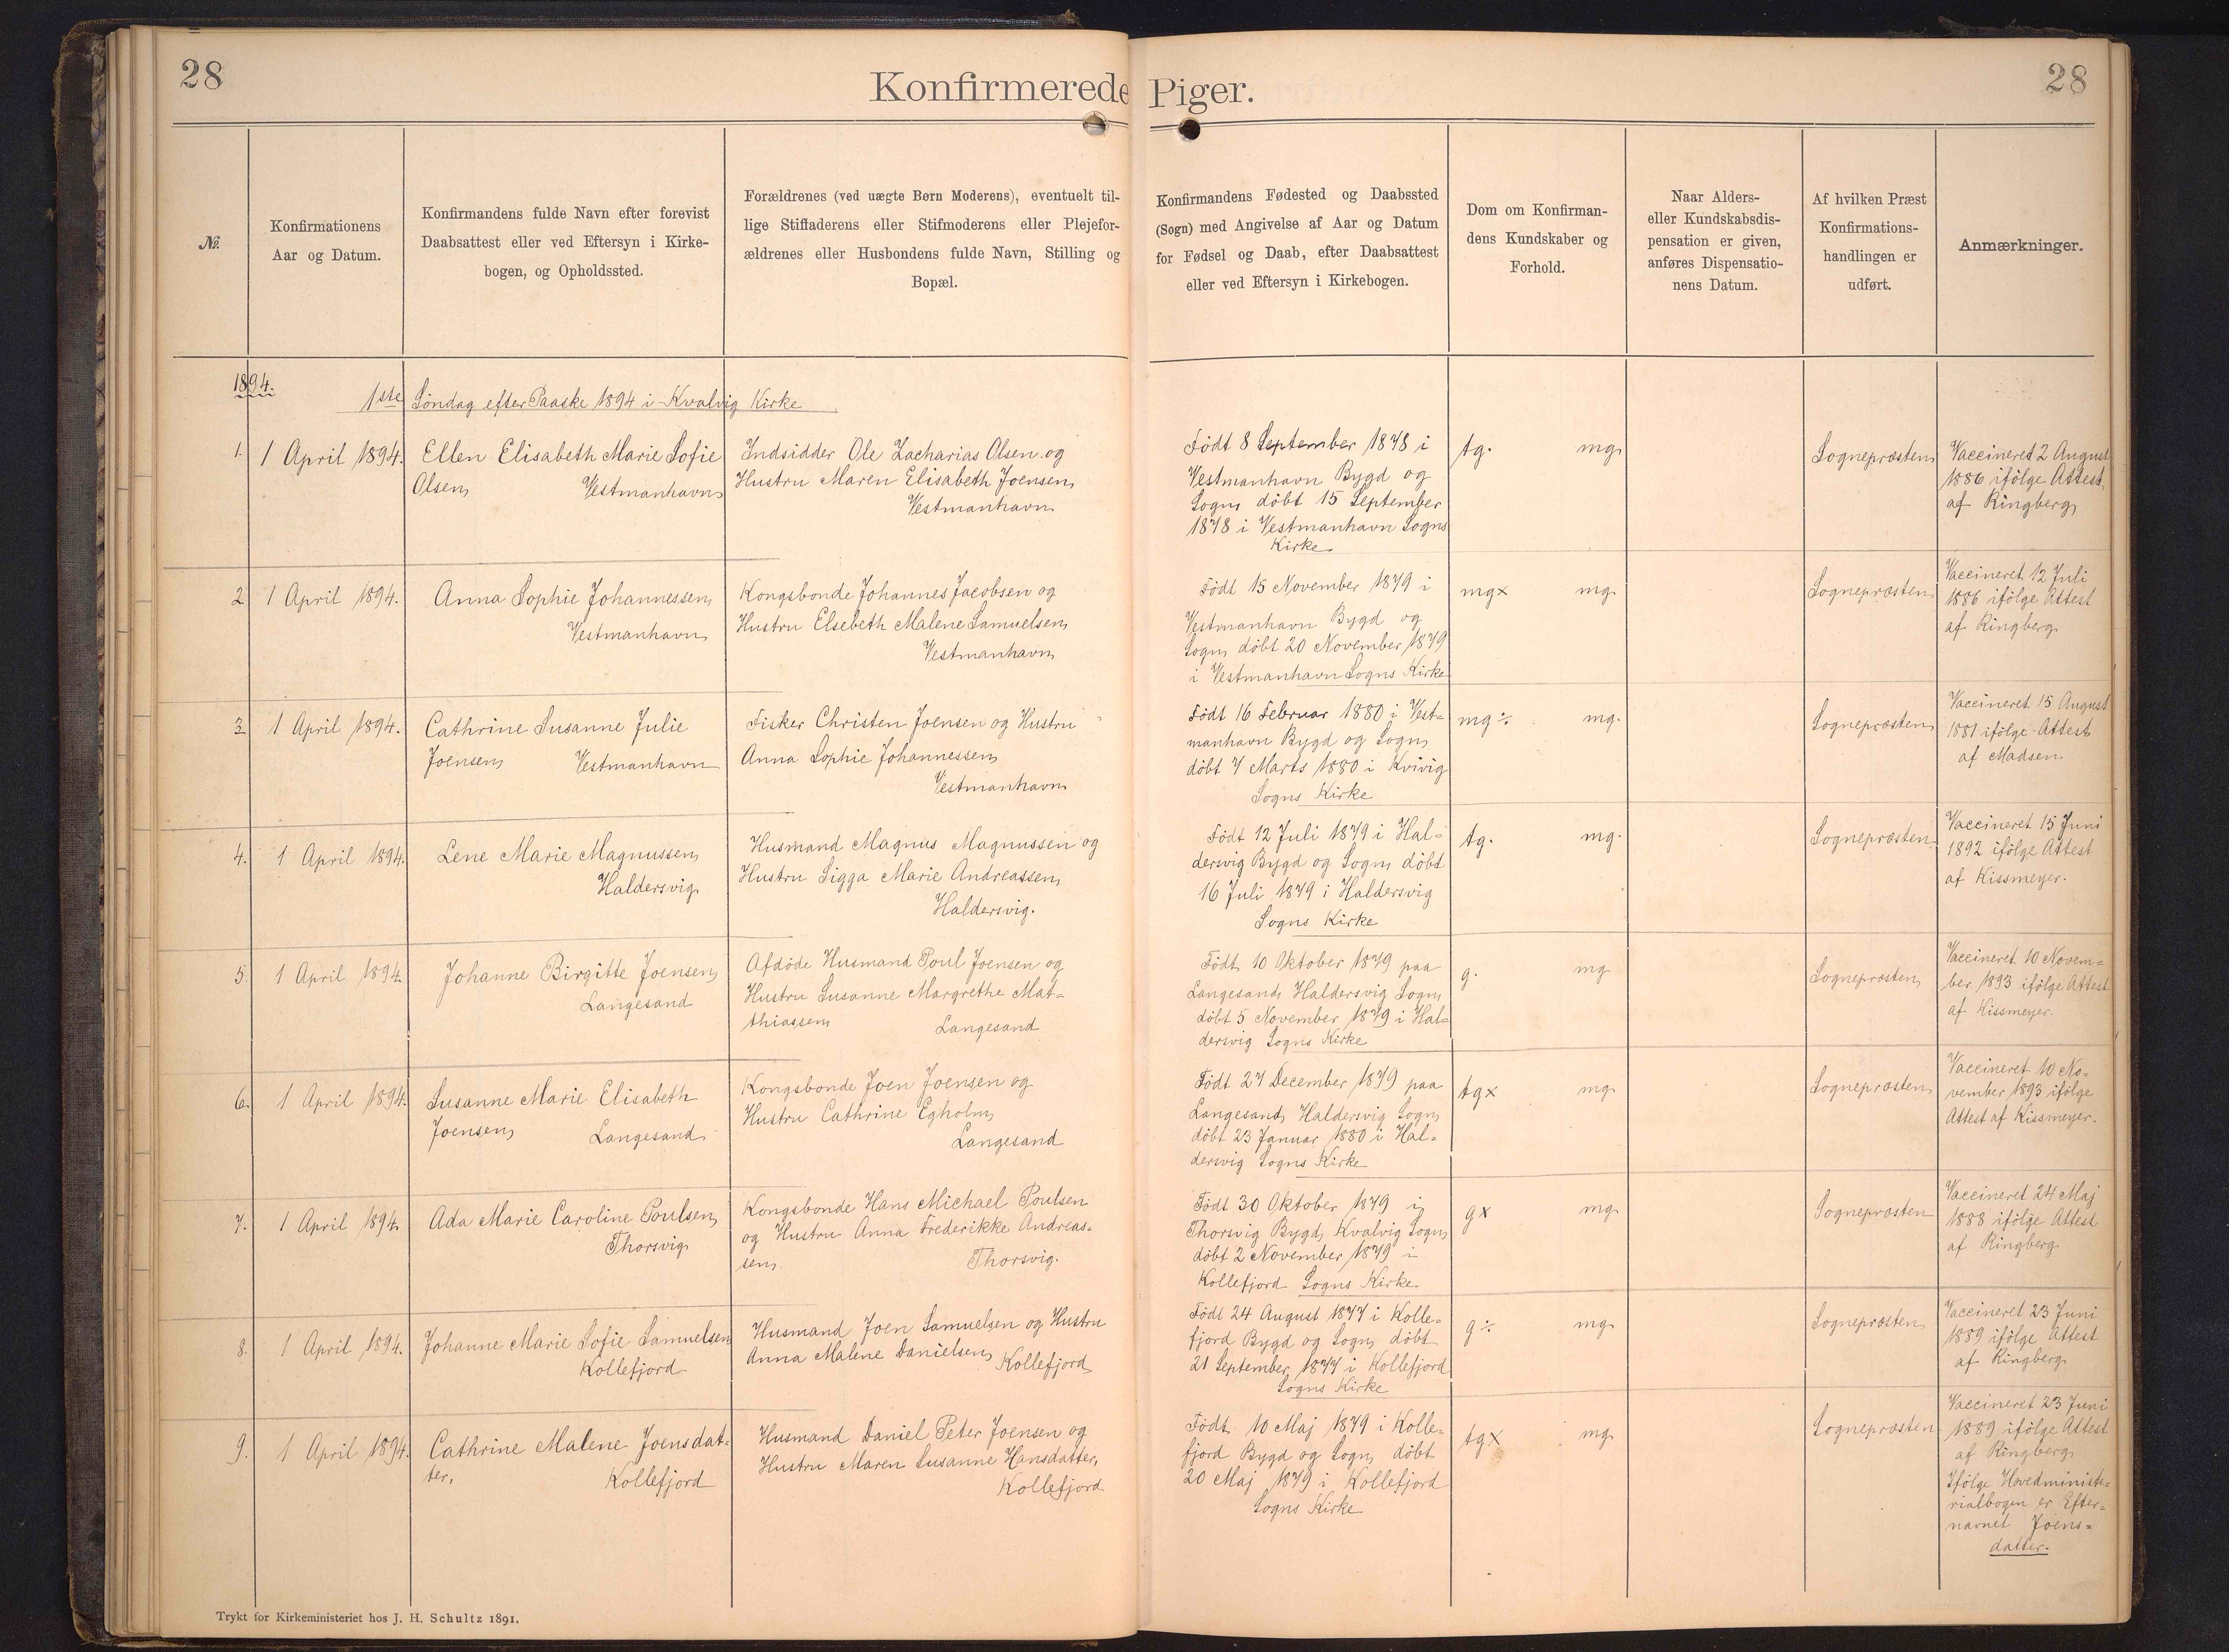 28
Konfirmerede Piger.
28
№.
Konfirmationens
Aar og Datum.
Konfirmandens fulde Navn efter forevist
Daabsattest eller ved Eftersyn i Kirke-
bogen, og Opholdssted.
Forældrenes (ved uægte Børn Moderens), eventuelt til-
lige Stiffaderens eller Stifmoderens eller Plejefor-
ældrenes eller Husbondens fulde Navn, Stilling og
Bopæl.
Konfirmandens Fødested og Daabssted
(Sogn) med Angivelse af Aar og Datum
for Fødsel og Daab, efter Daabsattest
eller ved Eftersyn i Kirkebogen.
Dom om Konfirman-
dens Kundskaber og
Forhold.
Naar Alders-
eller Kundskabsdis-
pensation er given,
anføres Dispensatio-
nens Datum.
Af hvilken Præst
Konfirmations-
handlingen er
udført.
Anmærkninger.
1894.
1ste Söndag efter Paaske 1894 i Kvalvig Kirke
1.
1 April 1894.
Ellen Elisabeth Marie Sofie
Olsen, Vestmanhavn
Indsidder Ole Zacharias Olsen og
Hustru Maren Elisabeth Joensen,
Vestmanhavn
Födt 8 September 1878 i
Vestmanhavn Bygd og
Sogn, döbt 15 September
1878 i Vestmanhavn Sogns
Kirke
tg. mg
Sognepræsten
Vaccineret 2 August
1886 ifölge Attest
af Ringberg
2
1 April 1894.
Anna Sophie Johannessen,
Vestmanhavn
Kongsbonde Johannes Jacobsen og
Hustru Elsebeth Malene Samuelsen,
Vestmanhavn
Födt 15 November 1879 i
Vestmanhavn Bygd og
Sogn, döbt 20 November 1879
i Vestmanhavn Sogns Kirke
mg× mg
Sognepræsten
Vaccineret 12 Juli
1886 ifölge Attest
af Ringberg
3
1 April 1894.
Cathrine Susanne Julie
Joensen, Vestmanhavn
Fisker Christen Joensen og Hustru
Anna Sophie Johannessen,
Vestmanhavn
Födt 16 Februar 1880 i Vest=
manhavn Bygd og Sogn,
döbt 7 Marts 1880 i Kvivig
Sogns Kirke
mg÷ mg.
Sognepræsten
Vaccineret 15 August
1881 ifölge Attest
af Madsen
4.
1 April 1894.
Lene Marie Magnussen,
Haldersvig
Husmand Magnus Magnussen og
Hustru Sigga Marie Andreassen,
Haldersvig.
Födt 12 Juli 1879 i Hal=
dersvig Bygd og Sogn, döbt
16 Juli 1879 i Haldersvig
Sogns Kirke
tg. mg.
Sognepræsten
Vaccineret 15 Juni
1892 ifölge Attest
af Kissmeyer.
5
1 April 1894
Johanne Birgitte Joensen,
Langesand
Afdöde Husmand Poul Joensen og
Hustru Susanne Margrethe Mat=
thiassen Langesand
Födt 10 Oktober 1879 paa
Langesand, Haldersvig Sogn,
döbt 5 November 1879 i Hal=
dersvig Sogns Kirke
g. mg
Sognepræsten
Vaccineret 10 Novem=
ber 1893 ifölge Attest
af Kissmeyer.
6.
1 April 1894.
Susanne Marie Elisabeth
Joensen, Langesand
Kongsbonde Joen Joensen og
Hustru Cathrine Egholm,
Langesand
Födt 27 December 1879 paa
Langesand, Haldersvig Sogn,
döbt 23 Januar 1880 i Hal=
dersvig Sogns Kirke
tg× mg
Sognepræsten
Vaccineret 10 No=
vember 1893 ifölge
Attest af Kissmeyer.
7.
1 April 1894
Ada Marie Caroline Poulsen,
Thorsvig
Kongsbonde Hans Michael Poulsen
og Hustru Anna Frederikke Andreas=
sen, Thorsvig.
Födt 30 Oktober 1879 i
Thorsvig Bygd, Kvalvig Sogn,
döbt 2 November 1879 i
Kollefjord Sogns Kirke
g× mg
Sognepræsten
Vaccineret 24 Maj
1888 ifölge Attest
af Ringberg
8.
1 April 1894.
Johanne Marie Sofie Samuelsen
Kollefjord
Husmand Joen Samuelsen og Hustru
Anna Malene Danielsen, Kollefjord
Födt 24 August 1877 i Kolle=
fjord Bygd og Sogn, döbt
21 September 1877 i Kollefjord
Sogns Kirke
g÷ mg
Sognepræsten
Vaccineret 23 Juni
1889 ifölge Attest
af Ringberg
9.
1 April 1894.
Cathrine Malene Joensdat=
ter, Kollefjord
Husmand Daniel Peter Joensen og
Hustru Maren Susanne Hansdatter,
Kollefjord
Födt 10 Maj 1879 i Kolle=
fjord Bygd og Sogn, döbt
20 Maj 1879 i Kollefjord
Sogns Kirke
tg× mg
Sognepræsten
Vaccineret 23 Juni
1889 ifölge Attest
af Ringberg
Ifölge Hovedministe=
rialbogen er Efter=
navnet Joens=
datter.
Trykt for Kirkeministeriet hos J. H. Schultz 1891.